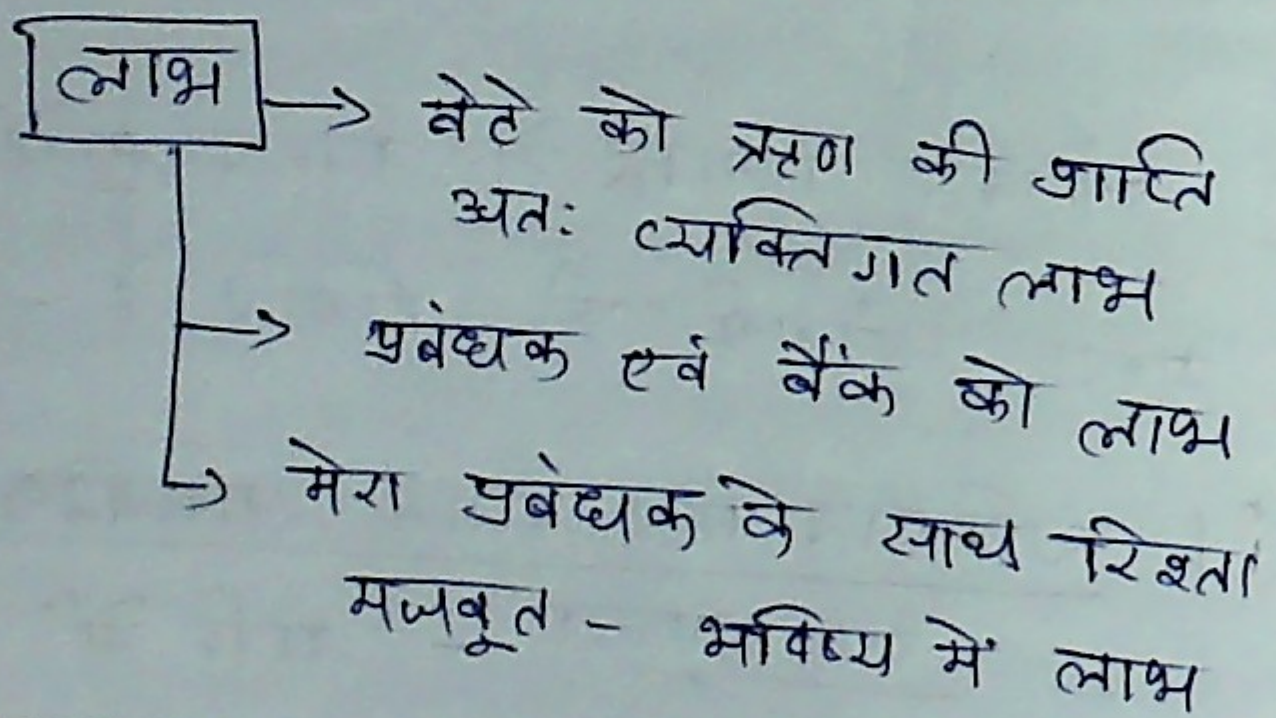 लाभ
बेटे को ऋण की प्राप्ति
अत: व्यक्तिगत लाभ
प्रबंधक एवं बैंक को लाभ
मेरा प्रबंधक के साथ रिश्ता
मजबूत - भविष्य में लाभ